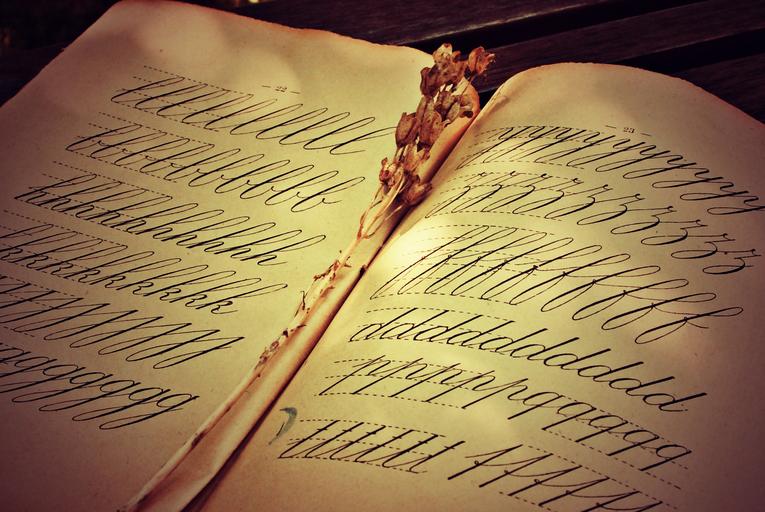 — 22 —
llllllllllll
bbbbbbbbbbb
hhhhhhhhhhhh
kkkkkkkkkkk
jjjjjjjjjj
ggggggggg
— 23 —
yyyyyyyyyyyy
zzzzzzzzzzzz
fffffffffff
dddddddddddddd
pppppp qqqqqq
ttttttt